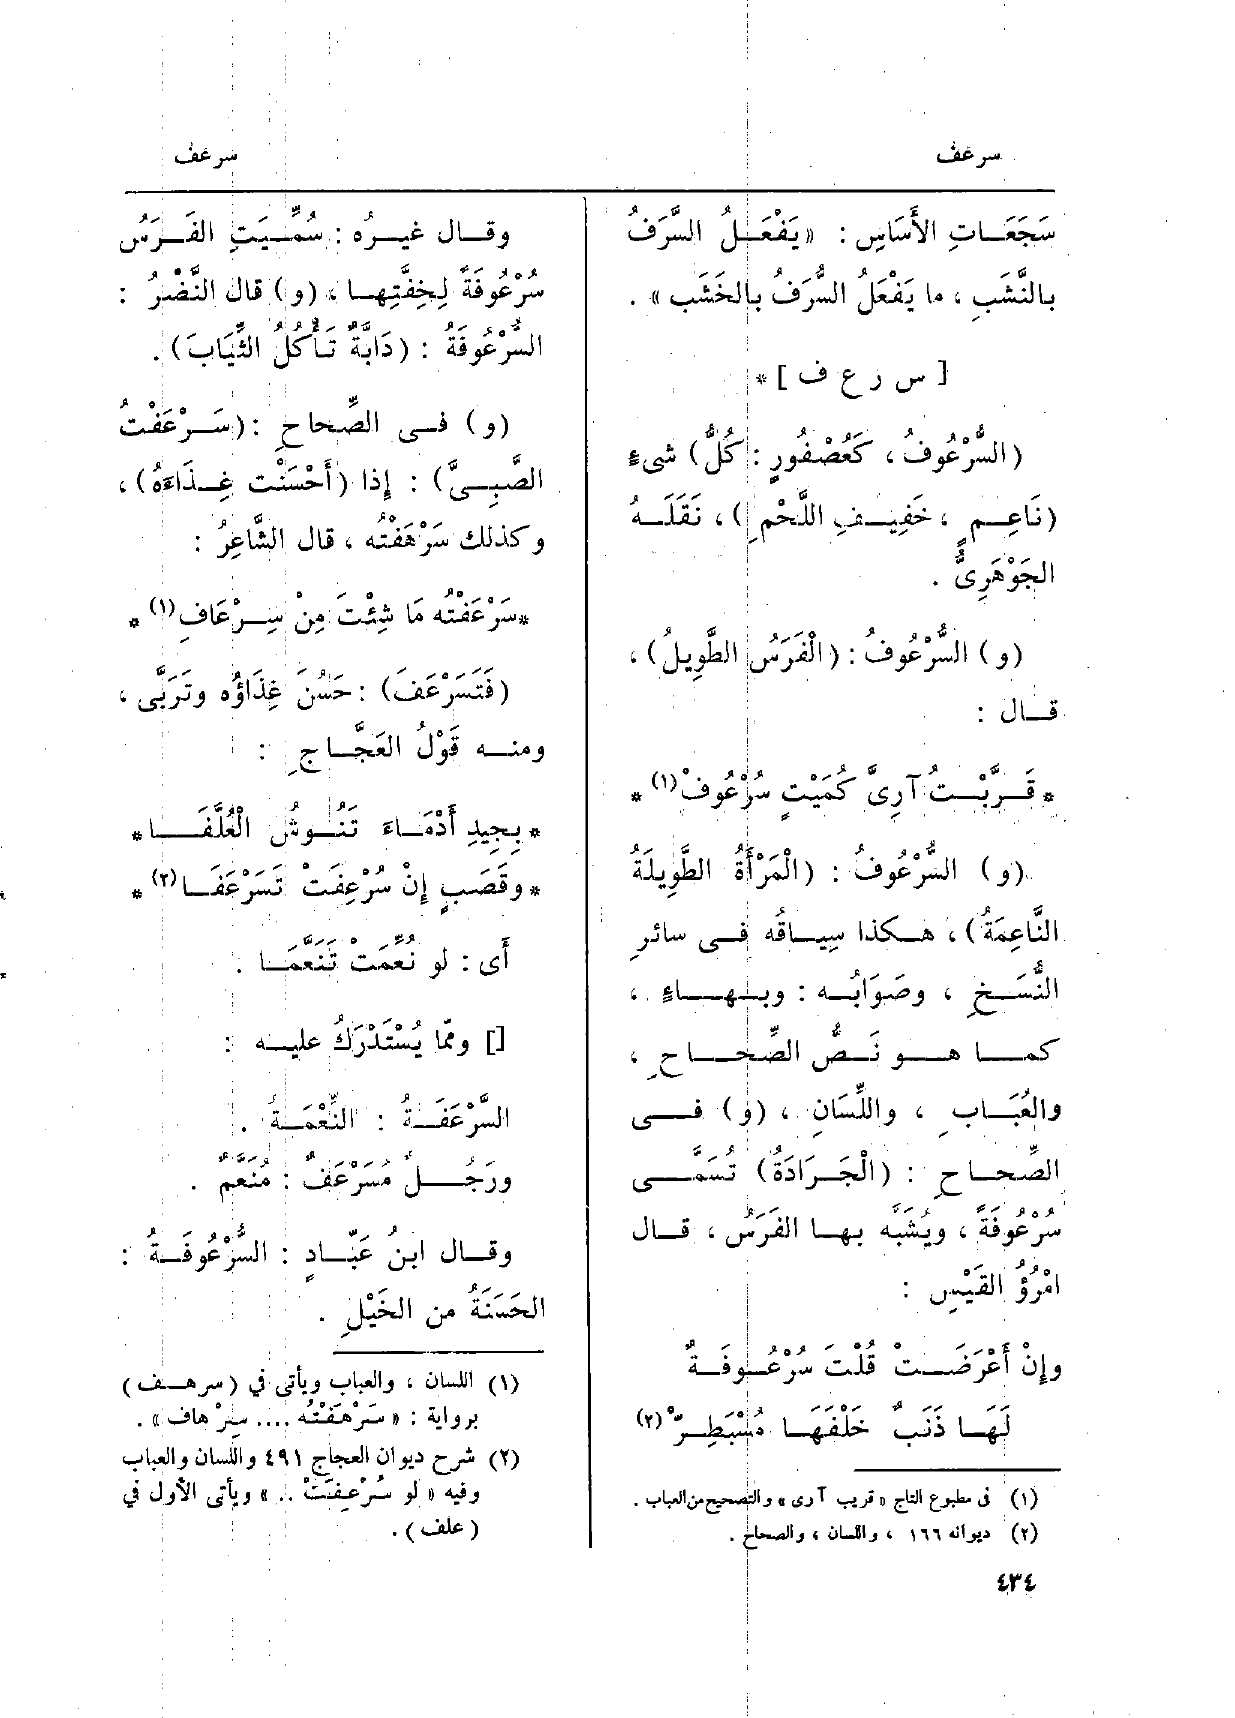 سرعف
سرعف
سَجَعَاتِ الأَسَاسِ : « يَفْعَلُ السَّرَفُ
بالنَّشَبِ ، ما يَفْعَلُ السُّرَفُ بالخَشَب » .
[ س ر ع ف ] *
(السُّرْعُوفُ ، كَعُصْفُورٍ : كُلُّ) شىءٍ
(نَاعِمٍ ، خَفِيفِ اللَّحْمِ) ، نَقَلَهُ
الجَوْهَرِىُّ .
(و) السُّرْعُوفُ : (الْفَرَسُ الطَّوِيلُ) ،
قال :
* قَرَّبْتُ آرِىَّ كُمَيْتٍ سُرْعُوفْ (١) *
(و) السُّرْعُوفُ : (الْمَرْأَةُ الطَّوِيلَةُ
النَّاعِمَةُ) ، هكذا سِياقُه فى سائرِ
النُّسَخِ ، وصَوَابُه : وبهاءٍ ،
كما هو نَصُّ الصِّحاحِ ،
والعُبَابِ ، واللِّسَانِ ، (و) فى
الصِّحاحِ : (الْجَرَادَةُ) تُسَمَّى
سُرْعُوفَةً ، ويُشَبَّه بها الفَرَسُ ، قال
امْرُؤُ القَيْسِ :
وإِنْ أَعْرَضَتْ قُلْتَ سُرْعُوفَةٌ
لَهَا ذَنَبٌ خَلْفَهَا مُسْبَطِرّْ (٢)
(١) فى مطبوع التاج « قريب آرى » والتصحيح من العباب .
(٢) ديوانه ١٦٦ ، واللسان ، والصحاح .
٤٣٤
وقال غيرُه : سُمِّيَتِ الفَرَسُ
سُرْعُوفَةً لِخِفَّتِها ، (و) قال النَّضْرُ :
السُّرْعُوفَةُ : (دَابَّةٌ تَأْكُلُ الثِّيَابَ) .
(و) فى الصِّحاحِ : (سَرْعَفْتُ
الصَّبِىَّ) : إِذا (أَحْسَنْت غِذَاءَهُ) ،
وكذلك سَرْهَفْتُه ، قال الشَّاعِرُ :
* سَرْعَفْتُه مَا شِئْتَ مِنْ سِرْعَافِ (١) *
(فَتَسَرْعَفَ) : حَسُنَ غِذَاؤُه وتَرَبَّى ،
ومنه قَوْلُ العَجَّاجِ :
* بِجِيدِ أَدْمَاءَ تَنُوشُ الْعُلَّفَا *
* وقَصَبٍ إِنْ سُرْعِفَتْ تَسَرْعَفَا (٢) *
أَى : لو نُعِّمَتْ تَنَعَّمَا .
[] وممّا يُسْتَدْرَكُ عليه :
السَّرْعَفَةُ : النِّعْمَةُ .
ورَجُلٌ مُسَرْعَفٌ : مُنَعَّمٌ .
وقال ابنُ عَبَّادٍ : السُّرْعُوفَةُ :
الحَسَنَةُ من الخَيْلِ .
(١) اللسان ، والعباب ويأتى في (سرهف)
برواية : « سَرْهَفْتُه .... سِرْهاف » .
(٢) شرح ديوان العجاج ٤٩١ واللسان والعباب
وفيه « لو سُرْعِفَتْ .. » ويأتى الأول في
(علف) .